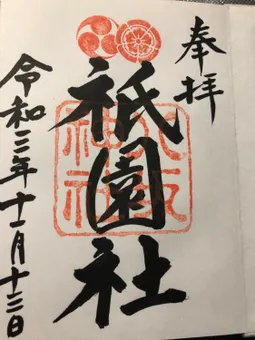 奉拝
祇園社
八坂
神社
令和三年十一月十三日